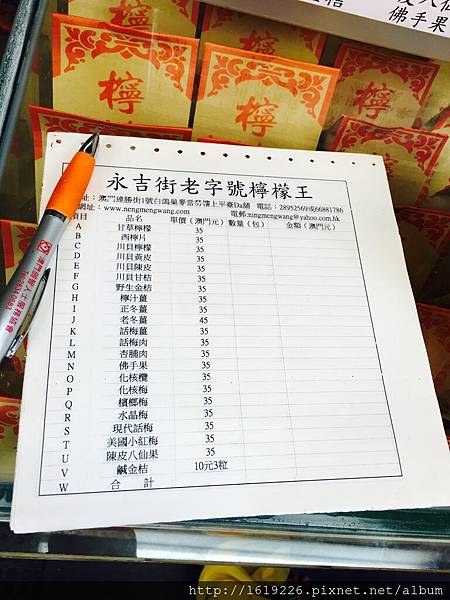 佛手果
檸
檸
檸
檸
永吉街老字號檸檬王
址：澳門連勝街1號白鴿巢麥當勞樓上平臺Da舖 電話：28952569或66881786
網址：www.nengmengwang.com 電郵:ningmengwang@yahoo.com.hk
項目 品名 單價（澳門元） 數量（包） 金額（澳門元）
A 甘草檸檬 35
B 西檸片 35
C 川貝檸檬 35
D 川貝黃皮 35
E 川貝陳皮 35
F 川貝甘桔 35
G 野生金桔 35
H 檸汁薑 35
I 正冬薑 35
J 老冬薑 45
K 話梅薑 35
L 話梅肉 35
M 杏脯肉 35
N 佛手果 35
O 化核欖 35
P 化核梅 35
Q 檳榔梅 35
R 水晶梅 35
S 現代話梅 35
T 美國小紅梅 35
U 陳皮八仙果 35
V 鹹金桔 10元3粒
W 合計
http://1619226.pixnet.net/album